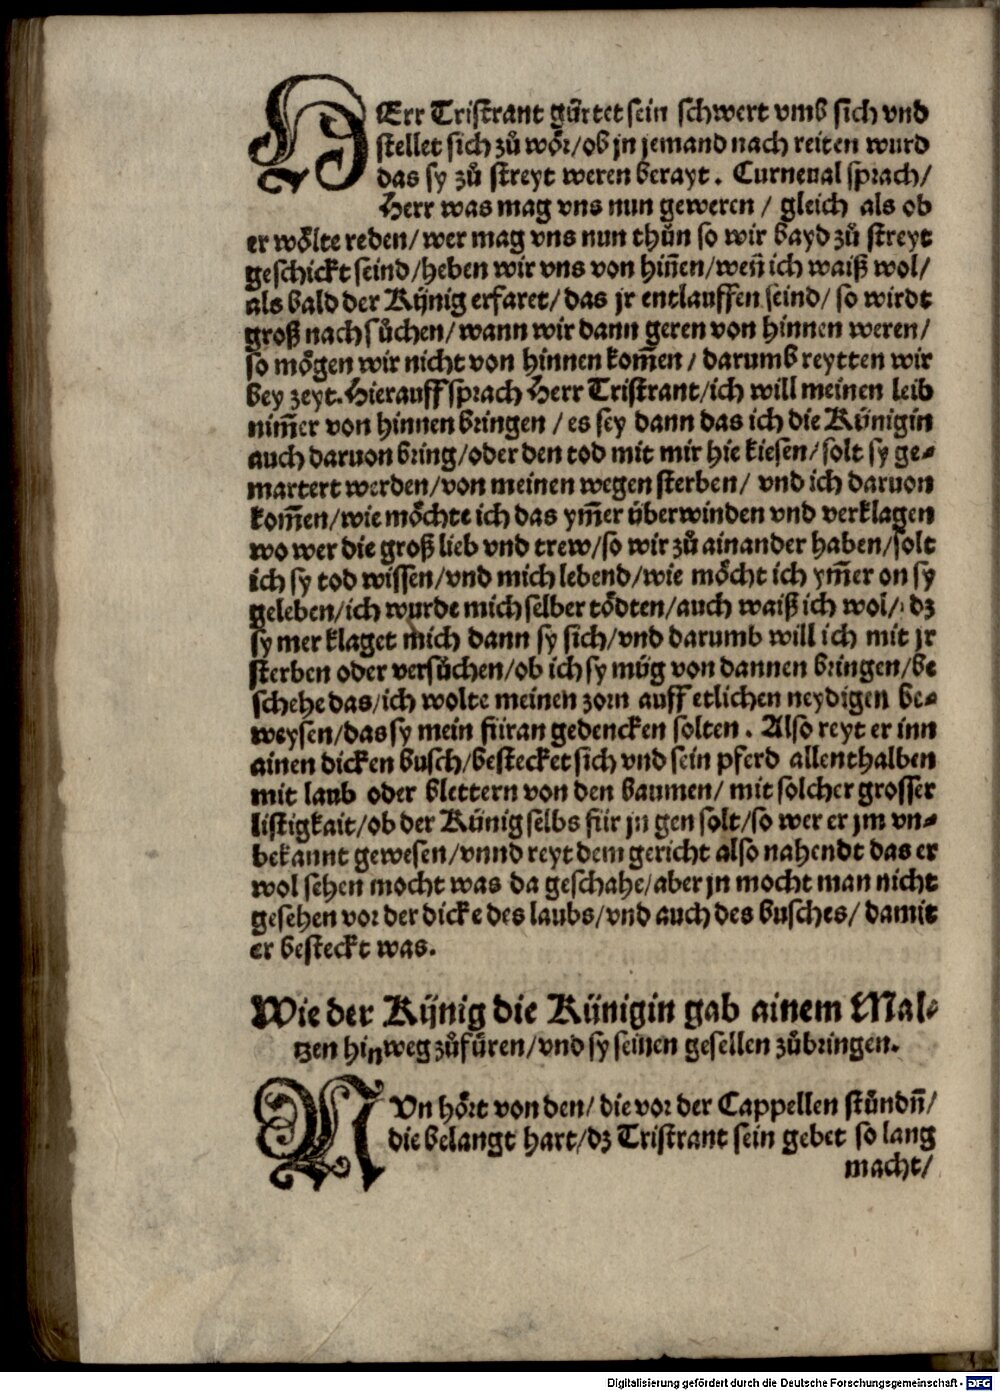 HErr Tristrant gürtet sein schwert vmb sich vnd
stellet sich zů wör/ob jn jemand nach reiten wurd
das sy zů streyt weren berayt. Curneual sprach/
Herr was mag vns nun geweren/ gleich als ob
er wölte reden/wer mag vns nun thůn so wir bayd zů streyt
geschickt seind/heben wir vns von hiñen/weñ ich waiß wol/
als bald der Künig erfaret/das jr entlauffen seind/ so wirdt
groß nach sůchen/wann wir dann geren von hinnen weren/
so mögen wir nicht von hinnen kom̃en/ darumb reytten wir
bey zeyt. Hierauff sprach Herr Tristrant/ich will meinen leib
nim̃er von hinnen bringen/es sey dann das ich die Künigin
auch daruon bring/oder den tod mit mir hie kiesen/solt sy ge-
martert werden/von meinen wegen sterben/ vnd ich daruon
kom̃en/wie möchte ich das ym̃er überwinden vnd verklagen
wo wer die groß lieb vnd trew/so wir zů ainander haben/solt
ich sy tod wissen/vnd mich lebend/wie möcht ich ym̃er on sy
geleben/ich wurde mich selber tödten/auch waiß ich wol/ dz
sy mer klaget mich dann sy sich/vnd darumb will ich mit jr
sterben oder versůchen/ob ich sy müg von dannen bringen/be
schehe das/ich wolte meinen zorn auff etlichen neydigen be-
weysen/das sy mein füran gedencken solten. Also reyt er inn
ainen dicken busch/bestecket sich vnd sein pferd allenthalben
mit laub oder blettern von den baumen/ mit solcher grosser
listigkait/ob der Künig selbs für jn gen solt/so wer er jm vn-
bekannt gewesen/vnnd reyt dem gericht also nahendt das er
wol sehen mocht was da geschahe/aber jn mocht man nicht
gesehen vor der dicke des laubs/vnd auch des busches/ damit
er besteckt was.
Wie der Künig die Künigin gab ainem Mal-
tzen hinweg zůfüren/vnd sy seinen gesellen zůbringen.
NVn hört von den/ die vor der Cappellen stůndñ/
die belangt hart/dz Tristrant sein gebet so lang
macht/
Digitalisierung gefördert durch die Deutsche Forschungsgemeinschaft - DFG